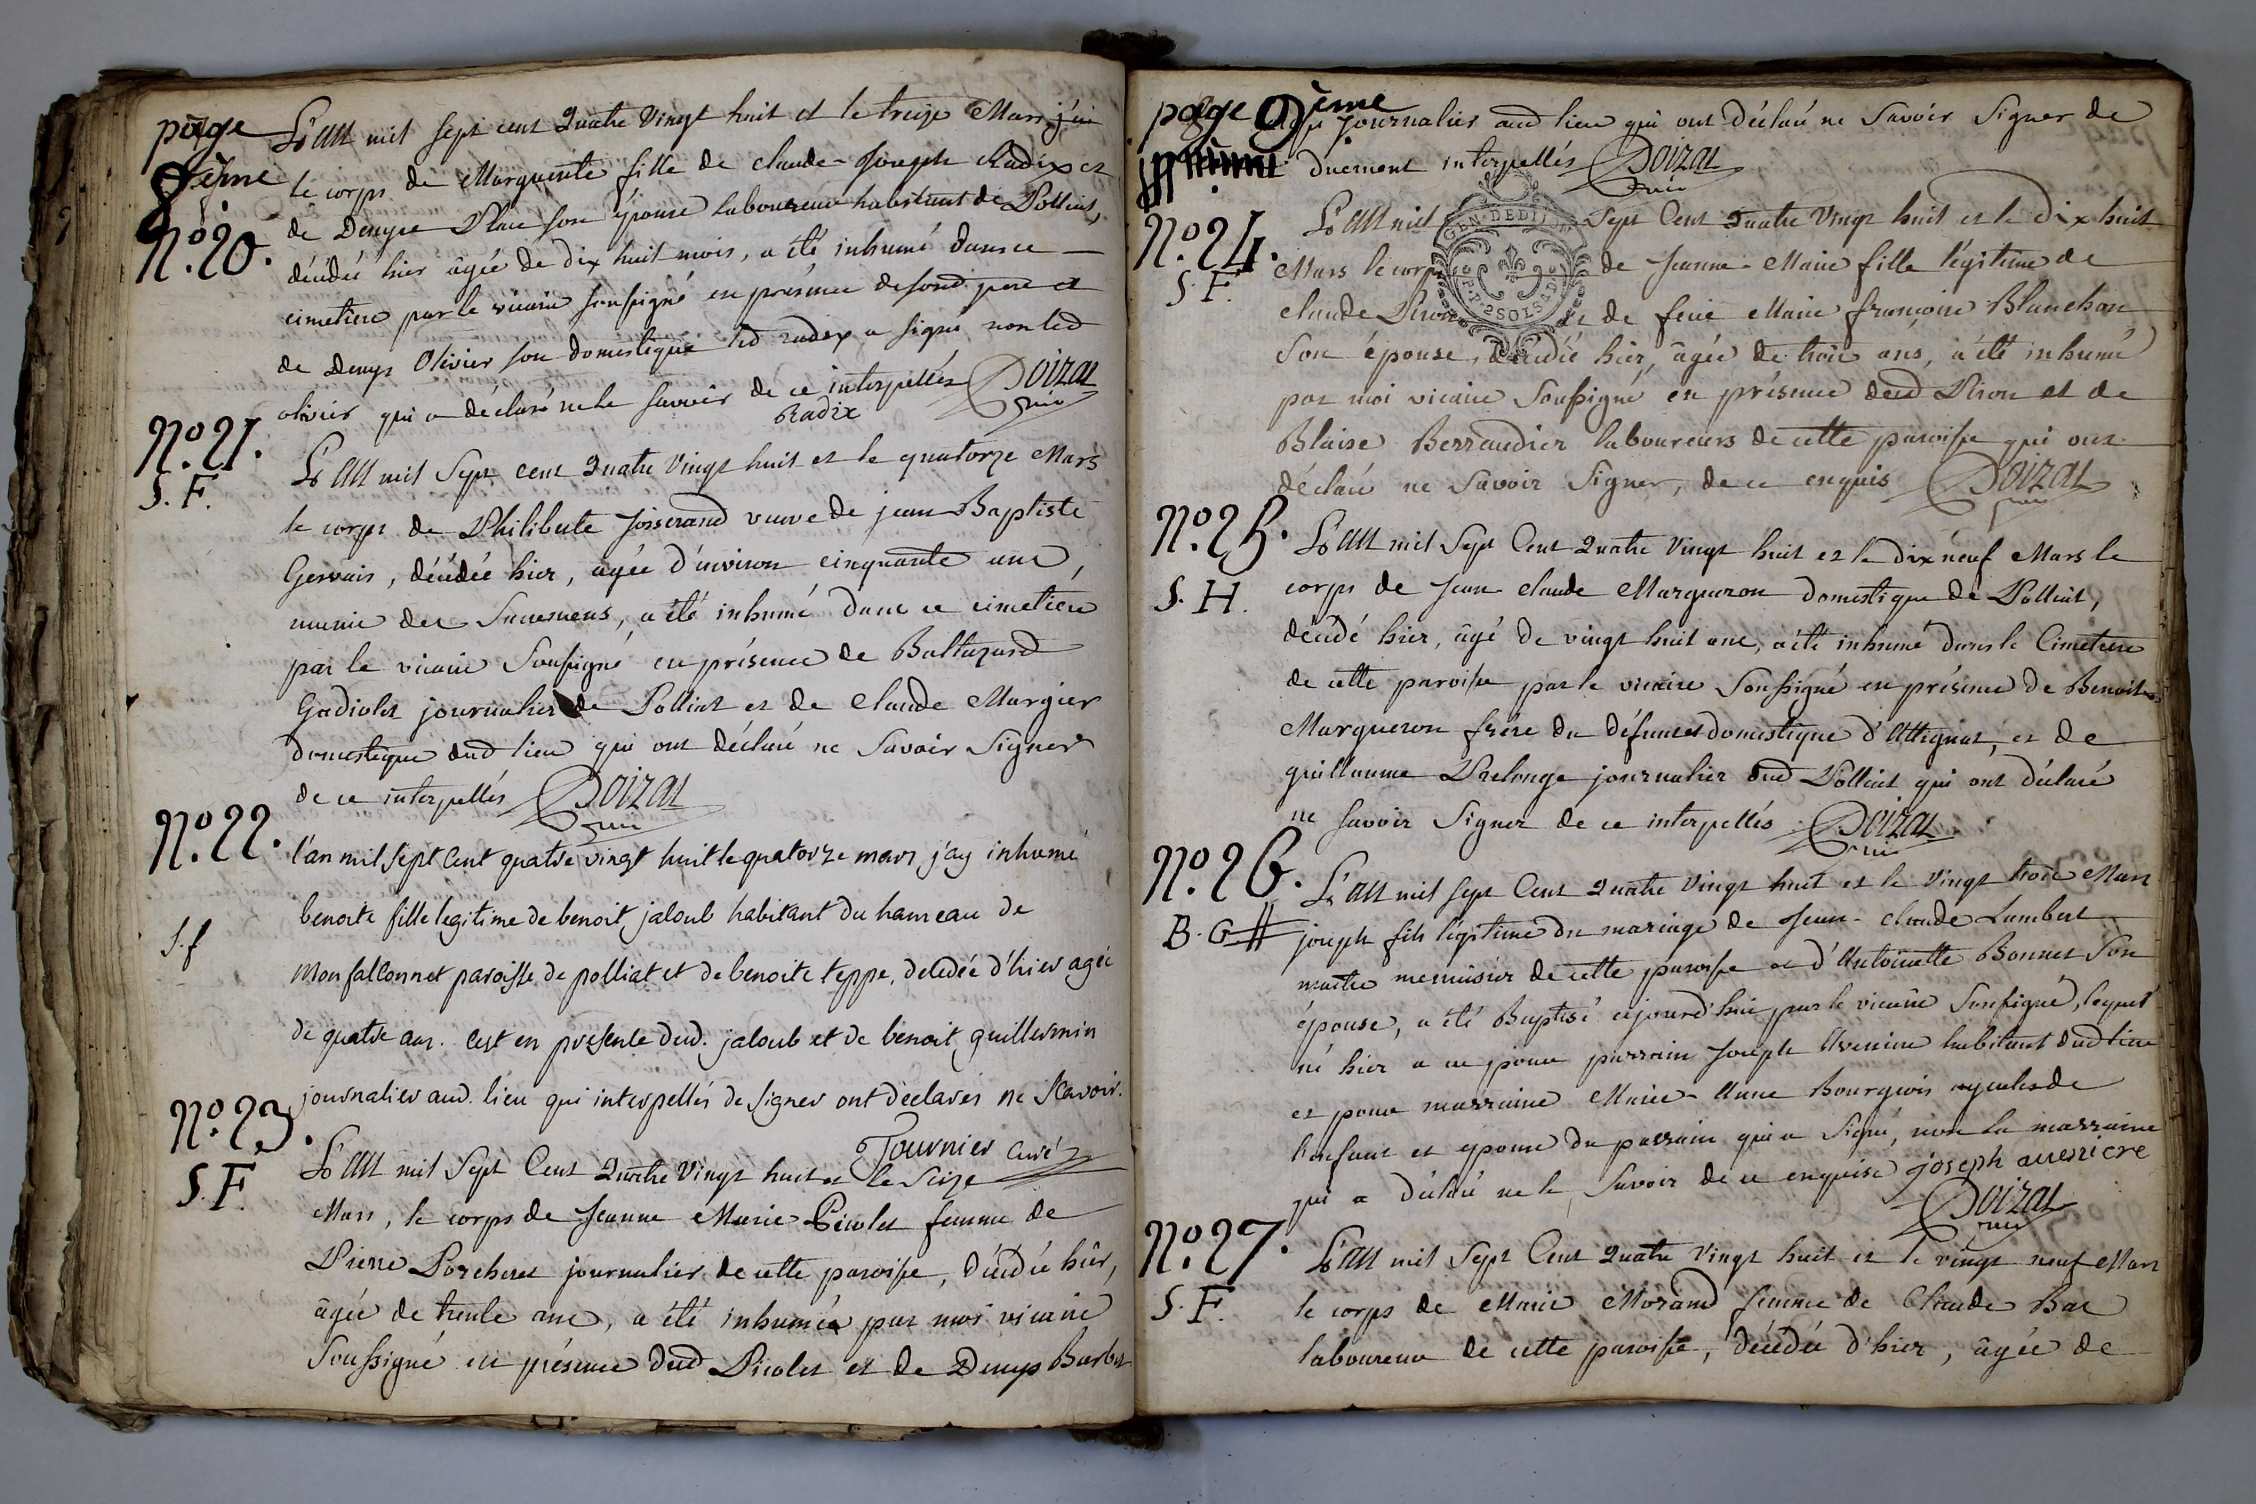 page
8.ème
L'an mil sept cent Quatre vingt huit et le treize Mars j'ai
N.º 20.
le corps de Marguerite fille de claude-Joseph Radix et
de Denyse Place son épouse laboureur habitant de Polliat,
décédée hier âgée de dix huit mois, a été inhumé dans ce
cimetiere par le vicaire soussigné en présence de sond. pere et
de Denys Olivier son domestique led radix a signé non led
olivier qui a déclaré ne le savoir de ce interpellés Doizat
Radix vic
N.º 21.
S. F.
L'an mil Sept cent Quatre vingt huit et le quatorze Mars
le corps de Philiberte Josserand veuve de jean Baptiste
Gervais, décédée hier, agée d'environ cinquante ans,
munie des Sacremens, a été inhumé dans ce cimetiere
par le vicaire Soussigné en présence de Baltazard
Gadiolet journalier de Polliat et de Claude Margier
domestique dud lieu qui ont déclaré ne Savoir Signer
de ce interpellés Doizat
vic
N.º 22.
S. f
l'an mil sept Cent quatre vingt huit le quatorze mars j'ay inhumé
benoite fille legitime de benoit jaloub habitant du hameau de
Monfalconnet paroisse de polliat et de benoite teppe, decedée d'hier agée
de quatre ans. Cest en presence dud. jaloub et de benoit guillermin
journalier aud. lieu qui interpellés de signer ont déclarés ne Scavoir.
Tournier Curé
N.º 23.
S. F.
L'an mil Sept Cent Quatre Vingt huit et le Seize
Mars, le corps de Jeanne Marie Picolet femme de
Pierre Porcheret journalier de cette paroisse, décédée hier,
âgée de trente ans, a été inhumée par moi vicaire
Soussigné en présence dud Picolet et de Denys Barbet
page 9ème
journalier aud lieu qui ont déclaré ne Savoir Signer de
duement interpellés Doizat
vic
N.º 24.
S. F.
L'an mil Sept Cent Quatre Vingt huit et le dix huit
GEN. DE DIJON
P.P. 2 SOLS 4 D
Mars le corps de Jeanne-Marie fille légitime de
claude Piron et de feue Marie françoise Blanchon
Son épouse, décédée hier, âgée de trois ans, a été inhumé
par moi vicaire Soussigné en présence dud Piron et de
Blaise Berraudier laboureurs de cette paroisse qui ont
déclaré ne Savoir Signer, de ce enquis Doizat
vic
N.º 25.
S. H.
L'an mil Sept Cent Quatre Vingt huit et le dix neuf Mars le
corps de Jean claude Margueron domestique de Polliat,
décédé hier, âgé de vingt huit ans, a été inhumé dans le Cimetiere
de cette paroisse par le vicaire Soussigné en présence de Benoit
Margueron frére du défunt et domestique d'Attignat, et de
guillaume Prelonge journalier dud Polliat qui ont déclaré
ne Savoir Signer de ce interpellés Doizat
vic
N.º 26.
B. G
L'an mil sept Cent Quatre Vingt huit et le Vingt trois Mars
joseph fils légitime du mariage de Jean-Claude Lambert
maitre menuisier de cette paroisse et d'Antoinette Bonnet Son
épouse, a été Baptisé cejourd'hui par le vicaire Soussigné, lequel
né hier a eu pour parrain Joseph Avernier habitant dud lieu
et pour marraine Marie-Anne Bourgeois ayeule de
l'enfant et epouse du parrain qui a Signé, non la marraine
qui a déclaré ne le Savoir de ce enquise joseph auerriere
Doizat
vic
N.º 27.
S. F.
L'an mil Sept Cent Quatre Vingt huit et le vingt neuf Mars
le corps de Marie Morand femme de Claude Bac
laboureur de cette paroisse, décédée d'hier, âgée de